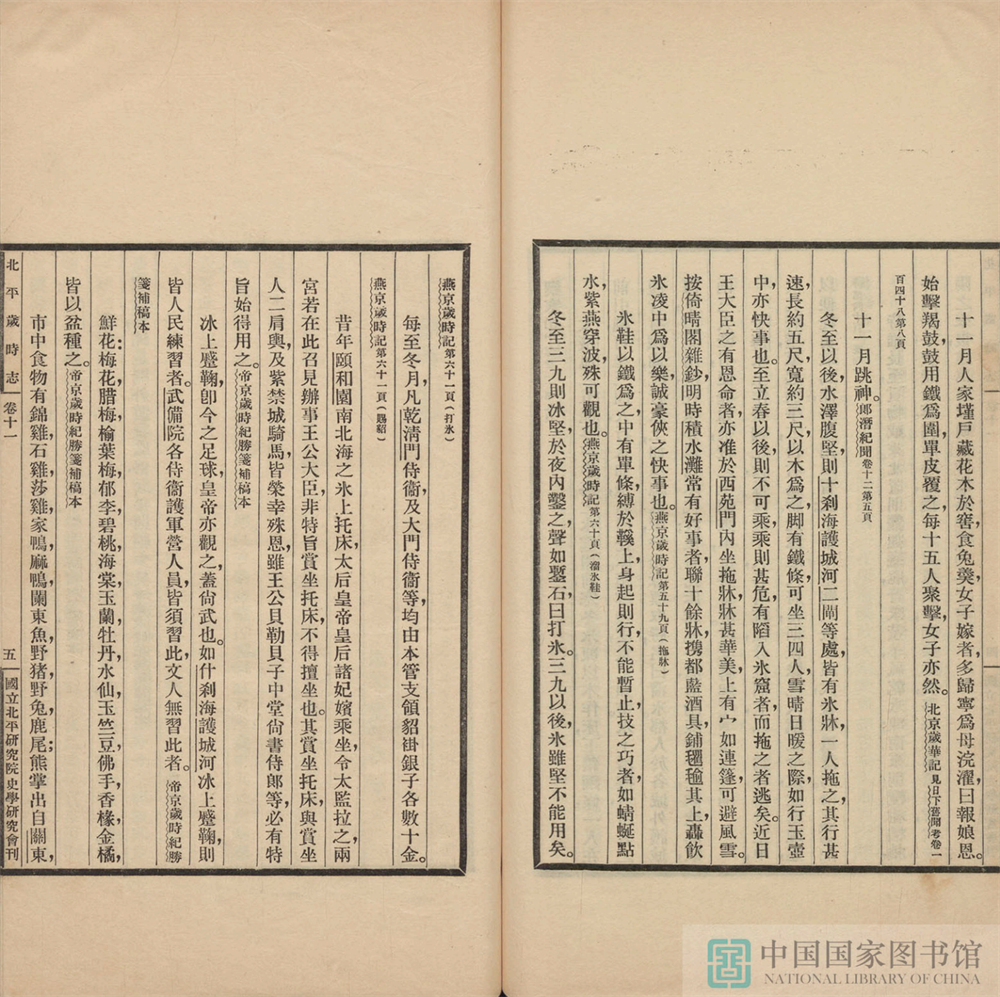 十一月人家墐戶藏花木於窖食兔羹女子嫁者多歸寧爲母浣濯曰報娘恩。
始擊羯鼓鼓用鐵爲圍單皮覆之每十五人聚擊女子亦然。北京歲華記見日下舊聞考卷一
百四十八第八頁
十一月跳神。郎潛紀聞卷十二第五頁
冬至以後水澤腹堅則十刹海護城河二閘等處皆有冰牀一人拖之其行甚
速長約五尺寬約三尺以木爲之脚有鐵條可坐三四人雪晴日暖之際如行玉壺
中亦快事也。至立春以後則不可乘乘則甚危有陷入冰窟者而拖之者逃矣。近日
王大臣之有恩命者亦准於西苑門內坐拖牀牀甚華美上有宀如連篷可避風雪。
按倚晴閣雜鈔明時積水灘常有好事者聯十餘牀携都藍酒具鋪氍毹其上轟飲
氷凌中爲以樂誠豪俠之快事也。燕京歲時記第五十九頁(拖牀)
氷鞋以鐵爲之中有單條縛於鞵上身起則行不能暫止技之巧者如蜻蜓點
水紫燕穿波殊可觀也。燕京歲時記第六十頁(溜氷鞋)
冬至三九則冰堅於夜內鑿之聲如鏨石曰打氷。三九以後氷雖堅不能用矣。
燕京歲時記第六十一頁(打氷)
每至冬月凡乾清門侍衞及大門侍衞等均由本管支領貂褂銀子各數十金。
燕京歲時記第六十一頁(賜貂)
昔年頤和園南北海之氷上托床太后皇帝皇后諸妃嬪乘坐令太監拉之兩
宮若在此召見辦事王公大臣非特旨賞坐托床不得擅坐也。其賞坐托床與賞坐
人二肩輿及紫禁城騎馬皆榮幸殊恩雖王公貝勒貝子中堂尙書侍郎等必有特
旨始得用之。帝京歲時紀勝箋補稿本
冰上蹙鞠卽今之足球皇帝亦觀之蓋尙武也。如什剎海護城河冰上蹙鞠則
皆人民練習者。武備院各侍衞護軍營人員皆須習此文人無習此者。帝京歲時紀勝
箋補稿本
鮮花:梅花臘梅榆葉梅郁李碧桃海棠玉蘭牡丹水仙玉竺豆佛手香櫞金橘
皆以盆種之。帝京歲時紀勝箋補稿本
市中食物有錦雞石雞莎雞家鴨麻鴨關東魚野猪野兔鹿尾;熊掌出自關東
北平歲時志 卷十一 五 國立北平研究院史學研究會刊
中国国家图书馆
NATIONAL LIBRARY OF CHINA